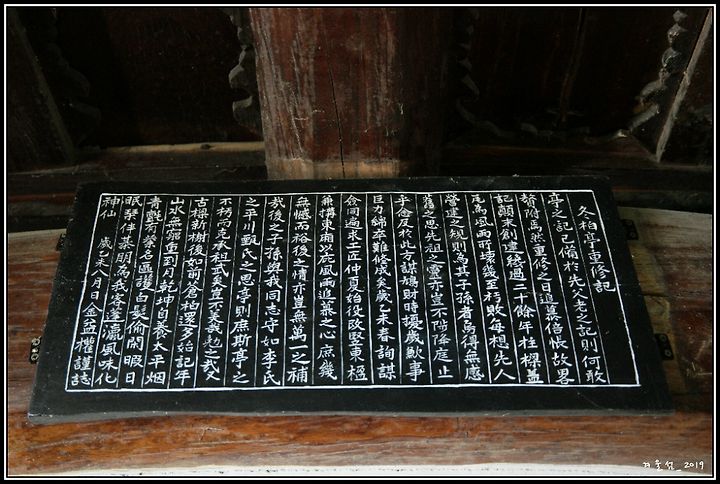 冬柏亭重修記
亭之記已備於先人老之記則何敢
贅附焉然重修之日追慕倍悵故畧
記顛末創建纔過二十餘年柱樑蓋
尾爲風雨所壞幾至於敗每想先人
營建之規則爲其子孫者焉得無感
舊之思先祖之靈亦豈不陟降庭止
乎余於此方謀鳩財時擾歲歉事
巨力綿難修成矣歲乙未春詢謀
僉同遍求土匠仲夏始役改堅東楹
兼搆東廂以庇風雨追慕之心庶幾
無憾而裕後之情亦豈無萬一之補
哉後之子孫與我同志守如李氏
之平川甄氏之思亭則庶斯亭之
不朽而克承祖武矣豈不美哉勉之哉又
古樑新樹後如前蒼柏亭始記年
山水無窮重到月乾坤自養太平烟
靑氈有榮名區護白髮偷閒暇日
眠琴伴棊朋爲我客蓬瀛風味化
神仙 歲乙未八月日金益權謹誌
겨울섬_2019